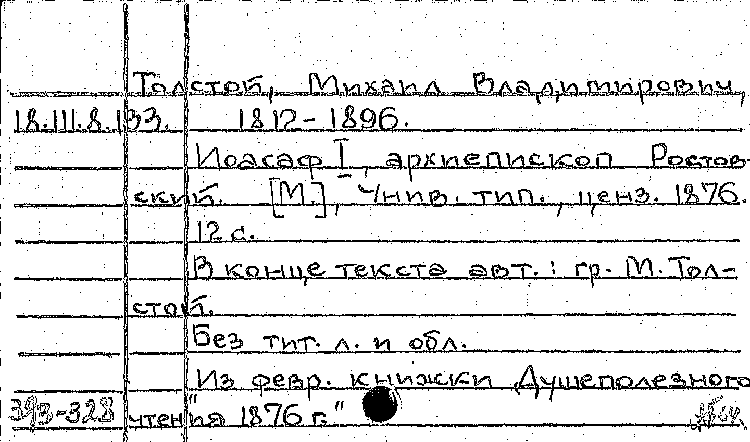 Толстой, Михаил Владимирович,
18.III.8.133. 1812-1896.
Иоасаф I, архиепископ Ростов-
ский. [М.], Унив. тип., ценз. 1876.
12 с.
В конце текста авт.: гр. М. Тол-
стой.
Без тит. л. и обл.
Из февр. книжки "Душеполезного
393-328 чтения 1876 г."